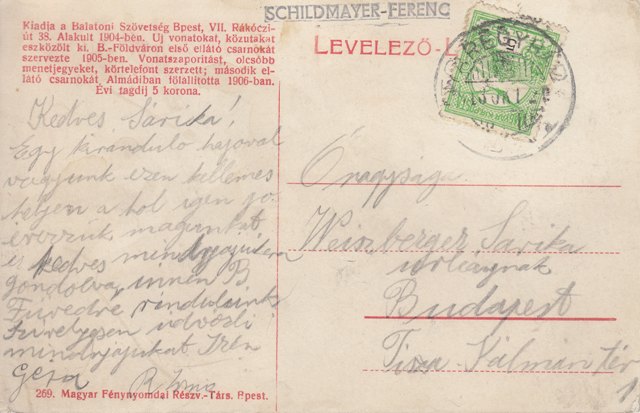 Kiadja a Balatoni Szövetség Bpest, VII. Rákóczi-
út 38. Alakult 1904-ben. Uj vonatokat, közutakat
eszközölt ki. B.-Földváron első ellátó csarnokát
szervezte 1905-ben. Vonatszaporitást, olcsóbb
menetjegyeket, körtelefont szerzett; második el-
látó csarnokát Almádiban fölállította 1906-ban.
Évi tagdij 5 korona.
SCHILDMAYER-FERENC
LEVELEZŐ-L
Kedves Sárika!
Egy kiránduló hajóval
vagyunk ezen kellemes
helyen a hol igen jó
érezzük magunkat
és kedves mindnyájukra
gondolva, innen B
Füredre rándulunk
Szívélyesen üdvözli
mindnyájukat Irén
Géza
Őnagysága
Weiszberger Sárika
úrleánynak
Budapest
Tisza Kálmán tér
269. Magyar Fénynyomdai Részv.-Társ. Bpest.